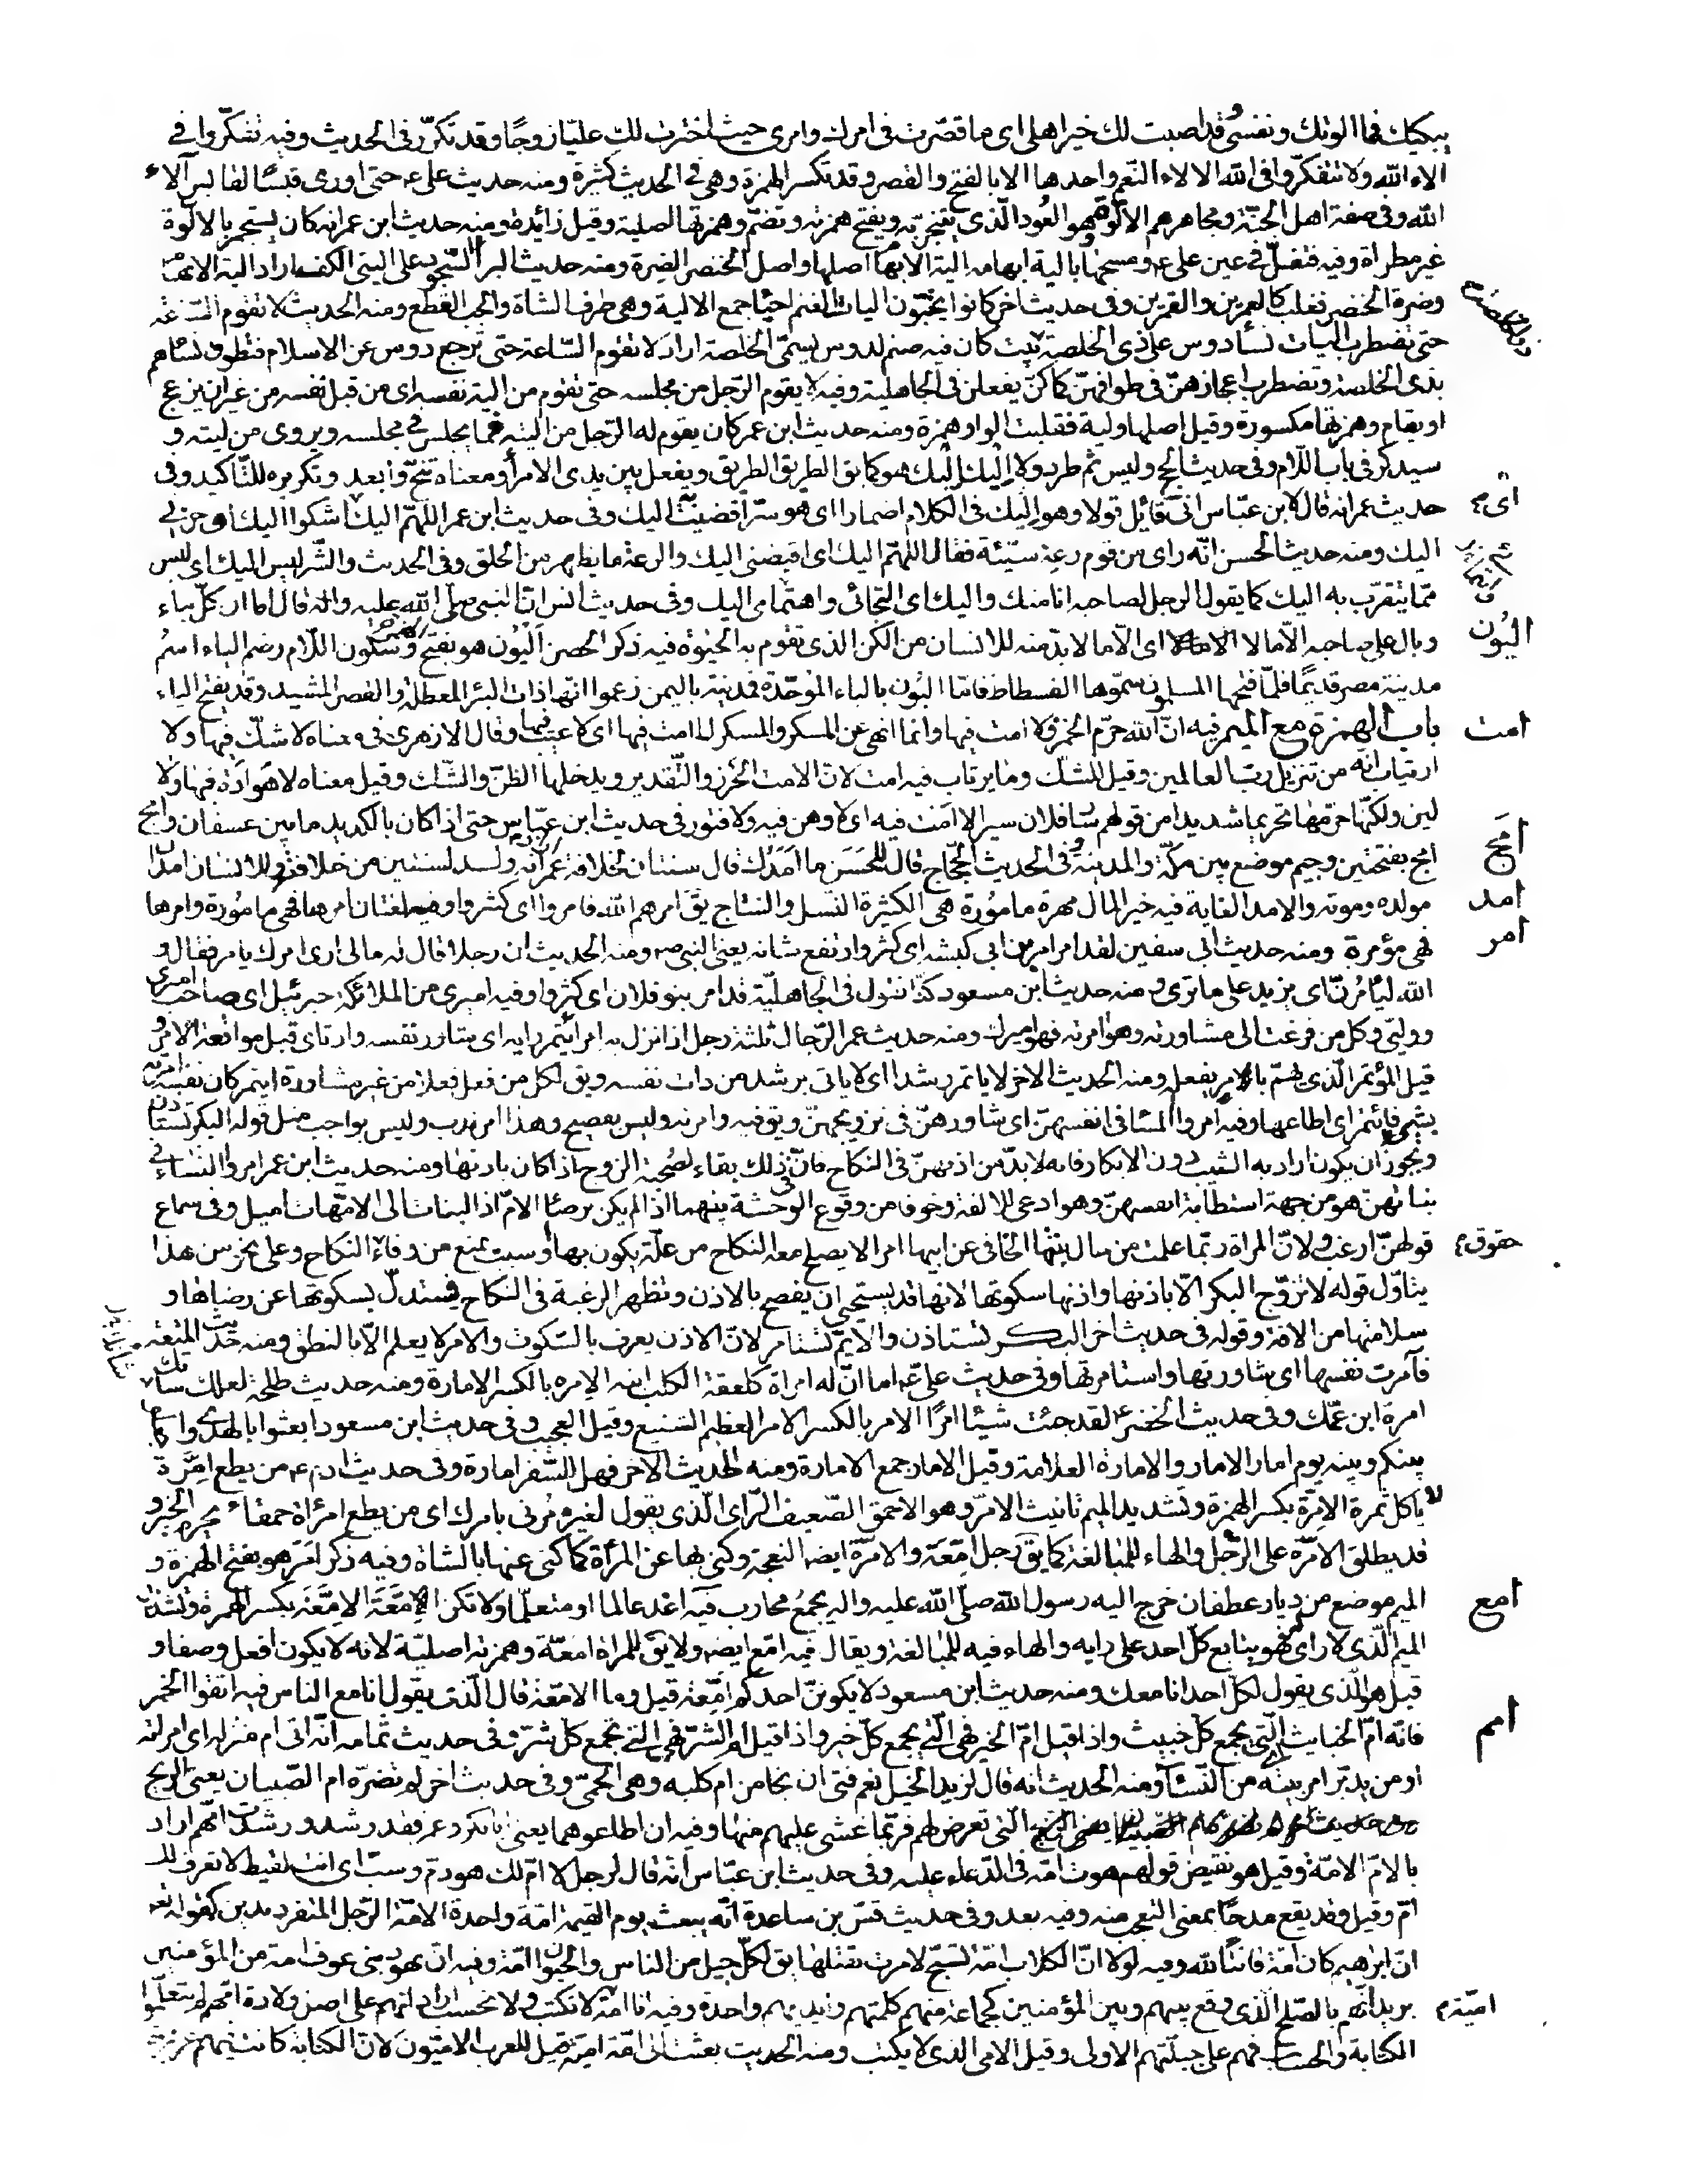 يبكيك فما الوتك ونفسى وقد اصبت لك خير اهلى اى ما قصّرت فى امرك وامرى حيث اخترت لك عليّا زوجًا وقد تكرّر فى الحديث وفيه تفكّروا فى
الاء الله ولا تتفكّروا فى الله الالاء النّعم واحدها الا بالفتح والقصر وقد تكسر الهمزة وهى فى الحديث كثيرة ومنه حديث علىّ ع حتى اورى قبسًا لقابس آلاء
الله وفى صفة اهل الجنّة ومجامرهم الالوّة هو العُود الّذى يتبخّر به ويفتح همزته وتضمّ وهمزتها اصلية وقيل زائدة ومنه حديث ابن عمر انه كان يستجمر بالالوّة
غير مطراة وفيه فتفل فى عين علىّ ع ومسحها بالية ابهامه الية الابهام اصلها واصل الخنصر الضرة ومنه حديث البراء السّجود على اليتى الكف اراد الية الابهام
وضرة الخنصر فغلب كالعمرين والقمرين وفى حديث اخر كانوا يجتبّون اليات الغنم احياء جمع الالية وهى طرف الشاة والجب القطع ومنه الحديث لا تقوم السّاعة
حتى تضطرب اليات نساء دوس على ذى الخلصة بيت كان فيه صنم لدوس يسمّى الخلصة اراد لا تقوم السّاعة حتى ترجع دوس عن الاسلام فتطوف نساهم
بذى الخلصة وتضطرب اعجازهنّ فى طوافهنّ كما كنّ يفعلن فى الجاهلية وفيه لا يقوم الرّجل من مجلسه حتى تقوم من الية نفسه اى من قبل نفسه من غير ان يزعج
او يقام وهمزتها مكسورة وقيل اصلها ولية فقلبت الواو همزة ومنه حديث ابن عمر كان يقوم له الرّجل من اليته فما يجلس فى مجلسه ويروى من ليته و
سيذكر فى باب اللّام وفى حديث الحج وليس ثم طرد ولا إليك إليك هو كما يق الطريق الطريق ويفعل بين يدى الامراء ومعناه تنحّ وابعد وتكريره للتّاكيد وفى
حديث عمر انه قال لابن عبّاس انى قائل قولا وهو إليك فى الكلام اضمار اى هو سرّ افضيت اليك وفى حديث ابن عمر اللّهمّ اليك اشكوا اليك او خذنى
اليك ومنه حديث الحسن انّه راى من قوم رعة سيّئة فقال اللّهمّ اليك اى اقبضنى اليك والرعة ما يظهر من الخلق وفى الحديث والشّر ليس اليك اى ليس
ممّا يتقرّب به اليك كما يقول الرجل لصاحبه انا منك واليك اى التجائى وانتمائى اليك وفى حديث انس انّ النبى صلّى الله عليه واله قال اما ان كلّ بناء
اليُون
وبال على صاحبه الّا ما لا الّا ما لا اى الّا ما لا بدّ منه للانسان من الكن الذى تقوم به الحيٰوة فيه ذكر الحصن اليُون هو بفتح الهمزة وسكون اللّام وضم الياء اسمُ
مدينة مصر قديمًا فلمّا فتحها المسلمون سمّوها الفسطاط فامّا البُون بالباء الموحّدة فمدينة باليمن زعموا انّها ذات البئر المعطلة والقصر المشيد وقد يفتح الباء
امت
باب الهمزة مع الميم فيه انّ الله حرّم الخمر فلا امت فيها وانما انهى عن السكر والمسكر لا امت فيها اى لا عيب فيها وقال الازهرى فى معناه لا شكّ فيها ولا
ارتياب انّه من تنزيل ربّ العالمين وقيل للشكّ وما يرتاب فيه امت لانّ الامت الحزر والتّقدير ويدخلها الظنّ والشّك وقيل معناه لا هَوَادَة فيها ولا
لين ولكنّه حرّمها تحريما شديدا من قولهم سار فلان سيرا لا امت فيه اى لا وهن فيه ولا فتور فى حديث ابن عبّاس حتى اذا كان بالكديد ما بين عسفان وامج
امج
امج بفتحتين وجيم موضع بين مكّة والمدينة وفى الحديث الحجّاج قال للحَسَن ما امدك قال سنتان لخلافة عمر اى انه ولد لسنتين من خلافته وللانسان امدان
امد
مولده وموته والامد الغاية فيه خير المال مهرة مامُورة هى الكثيرة النسل والنتاج يق امرهم الله فامروا اى كثروا وفيه لغتان امرها فهى مامُورة وامرها
امر
فهى مؤمرة ومنه حديث ابى سفين لقد امر امر بن ابى كبشه اى كثر وارتفع شانه يعنى النبى ص ومنه الحديث ان رجلا قال له مالى ارى امرك يامر فقال و
الله ليأمُرنّ اى يزيد على ما ترى ومنه حديث ابن مسعود كنّا نقول فى الجاهليّة قد امر بنو فلان اى كثروا وفيه اميرى من الملائكة جبرئيل اى صاحب امرى
ووليّى وكل من فزعت الى مشاورته وهوامرته فهو اميرك ومنه حديث عمر الرّجال ثلثة رجل اذا نزل به امر ائتمر رايه اى شاور نفسه وارتاى قبل مواقعة الامر و
قيل المؤتمر الّذى يهمّ بالامر يفعله ومنه الحديث الاخر لا ياتمر رشدا اى لا ياتى برشد من ذات نفسه ويق لكل من فعل فعلا من غير مشاورة ايتمر كان نفسه امرته
بشىء فائتمر اى اطاعها وفيه امروا النّساء فى انفسهنّ اى شاورهنّ فى تزويجهنّ ويق فيه وامرته وليس بفصيح وهذا امر ندب وليس بواجب مثل قوله البكر تستاذن
ويجوز ان يكون اراد به الثيّب دون الابكار فانه لا بدّ من اذنهنّ فى النكاح فانّ فى ذلك بقاء لصُحبة الزوج اذا كان باذنها ومنه حديث ابن عمر امروا النّساء فى
بناتهنّ هو من جهة استطابة انفسهنّ وهو ادعى للالفة وخوفا من وقوع الوحشة بينهما اذا لم يكن برضاء الامّ اذ البنات الى الامّهات اميل وفى سماع
قولهنّ ارغب ولانّ المراة ربّما علمت من حال بنتها الخافى عن ابيها امرا لا يصلح معه النكاح من علّة يكون بها او سبب يمنع من وفاء حقوق النكاح وعلى نحو من هذا
يتاوّل قوله لا تزوّج البكر الّا باذنها واذنها سكوتها لانها قد يستحيى ان يفصح بالاذن وتظهر الرغبة فى النكاح فيستدلّ بسكوتها عن رضاها و
سلامتها من الافة وقوله فى حديث اخر البكر تستاذن والايّم تستامر لانّ الاذن يعرف بالسّكوت والامر لا يعلم الّا بالنطق ومنه حديث المتعة
فآمرت نفسها اى شاورتها واستامرتها وفى حديث علىّ ع اما انّ له امراة كلعقة الكلب ابنه الإمره بالكسر الامارة ومنه حديث طلحة لعلك ساءتك
امرة ابن عمّك وفى حديث الخضر ع لقد جئت شيئا امرًا الامر بالكسر الامر العظم الشنيع وقيل العجيب وفى حديث ابن مسعود ابعثوا بالهدى واجعلوا
بينكم وبينه يوم امار الامار والامارة العلامة وقيل الامار جمع الامارة ومنه الحديث الاخر فهل للسّفر امارة وفى حديث ادم ع من يطع امّرة
لا ياكل ثمرة الامّرة بكسر الهمزة وتشديد الميم تانيث الامّر وهو الاحمق الضّعيف الرّاى الّذى يقول لغيره مُرنى بامرك اى من يطع امرأة حمقاء يحرم الخير و
قد يطلق الامّره على الرّجل والهاء للمبالغة كما يق رجل امّعة والامّرة ايضا النعجة وكنى بها عن المرأة كما كنى عنها بالشاة وفيه ذكر امَر هو بفتح الهمزة و
امع
الميم موضع من ديار غطفان خرج اليه رسول الله صلّى الله عليه واله يجمعُ محارب فيه اغد عالما او متعلّما ولا تكن امّعَة الامّعَة بكسر الهمزة وتشديد
الميم الّذى لا راى له فهو يتابع كلّ احد على رايه والهاء فيه للمبالغة ويقال فيه امّع ايضا ولا يق للمراة امعّة وهمزته اصليّة لانه لا يكون افعل وصفا و
قيل هو الّذى يقول لكلّ احد انا معك ومنه حديث ابن مسعود لا يكوننّ احدكم امّعة قيل وما الامّعة قال الّذى يقول انا مع الناس فيه اتقوا الخمر
امم
فانّه امّ الخبايث الّتى يجمع كلّ خبيث واذا قيل امّ الخير فهى الّتى يجمع كلّ خير واذا قيل امّ الشرّ فهى الّتى تجمع كلّ شرّ وفى حديث ثمامه انّه اتى ام منزله اى امراته
او من يدبّر امر بيته من النّساء ومنه الحديث انه قال لزيد الخيل نعم فتى ان نجا من ام كلبه وهى الحمىّ وفى حديث اخر لم تضرّه ام الصّبيان يعنى الريح
الّتى تعرض لهم فربّما غشى عليهم منها وفيه ان اطاعوهما يعنى ابا بكر وعمر فقد رشدوا ورشدت امّهم اراد
بالامّ الامّة وقيل هو نقيض قولهم هوت امّه فى الدّعاء عليه وفى حديث ابن عبّاس انّه قال لرجل لا امّ لك هو ذم وسبّ اى انت لقيط لا تعرف لك
امّ وقيل وقد يقع مدحًا بمعنى التعجب منه وفيه بعد وفى حديث قسّ بن ساعدة انّه يبعث يوم القيمة امّة واحدة الامّة الرّجل المنفرد بدين كقوله تع
انّ ابرهيم كان امّة قانتًا لله وفيه لولا انّ الكلاب امّة تسبّح لامرت بقتلها يق لكلّ جيل من الناس والحيوان امّة وفيه انّ يهود بنى عوف امة من المؤمنين
اميّة
يريد انّهم بالصّلح الّذى وقع بينهم وبين المؤمنين كجماعة منهم كلمتهم وايديهم واحدة وفيه انا امّة لا نكتب ولا نحسب اراد انهم على اصل ولادة امّهم لم يتعلّموا
الكتابة والحساب فهم على جبلّتهم الاولى وقيل الامى الذى لا يكتب ومنه الحديث بعثت الى امّة اميّة قيل للعرب الامّيّون لانّ الكتابة كانت فيهم عزيزة